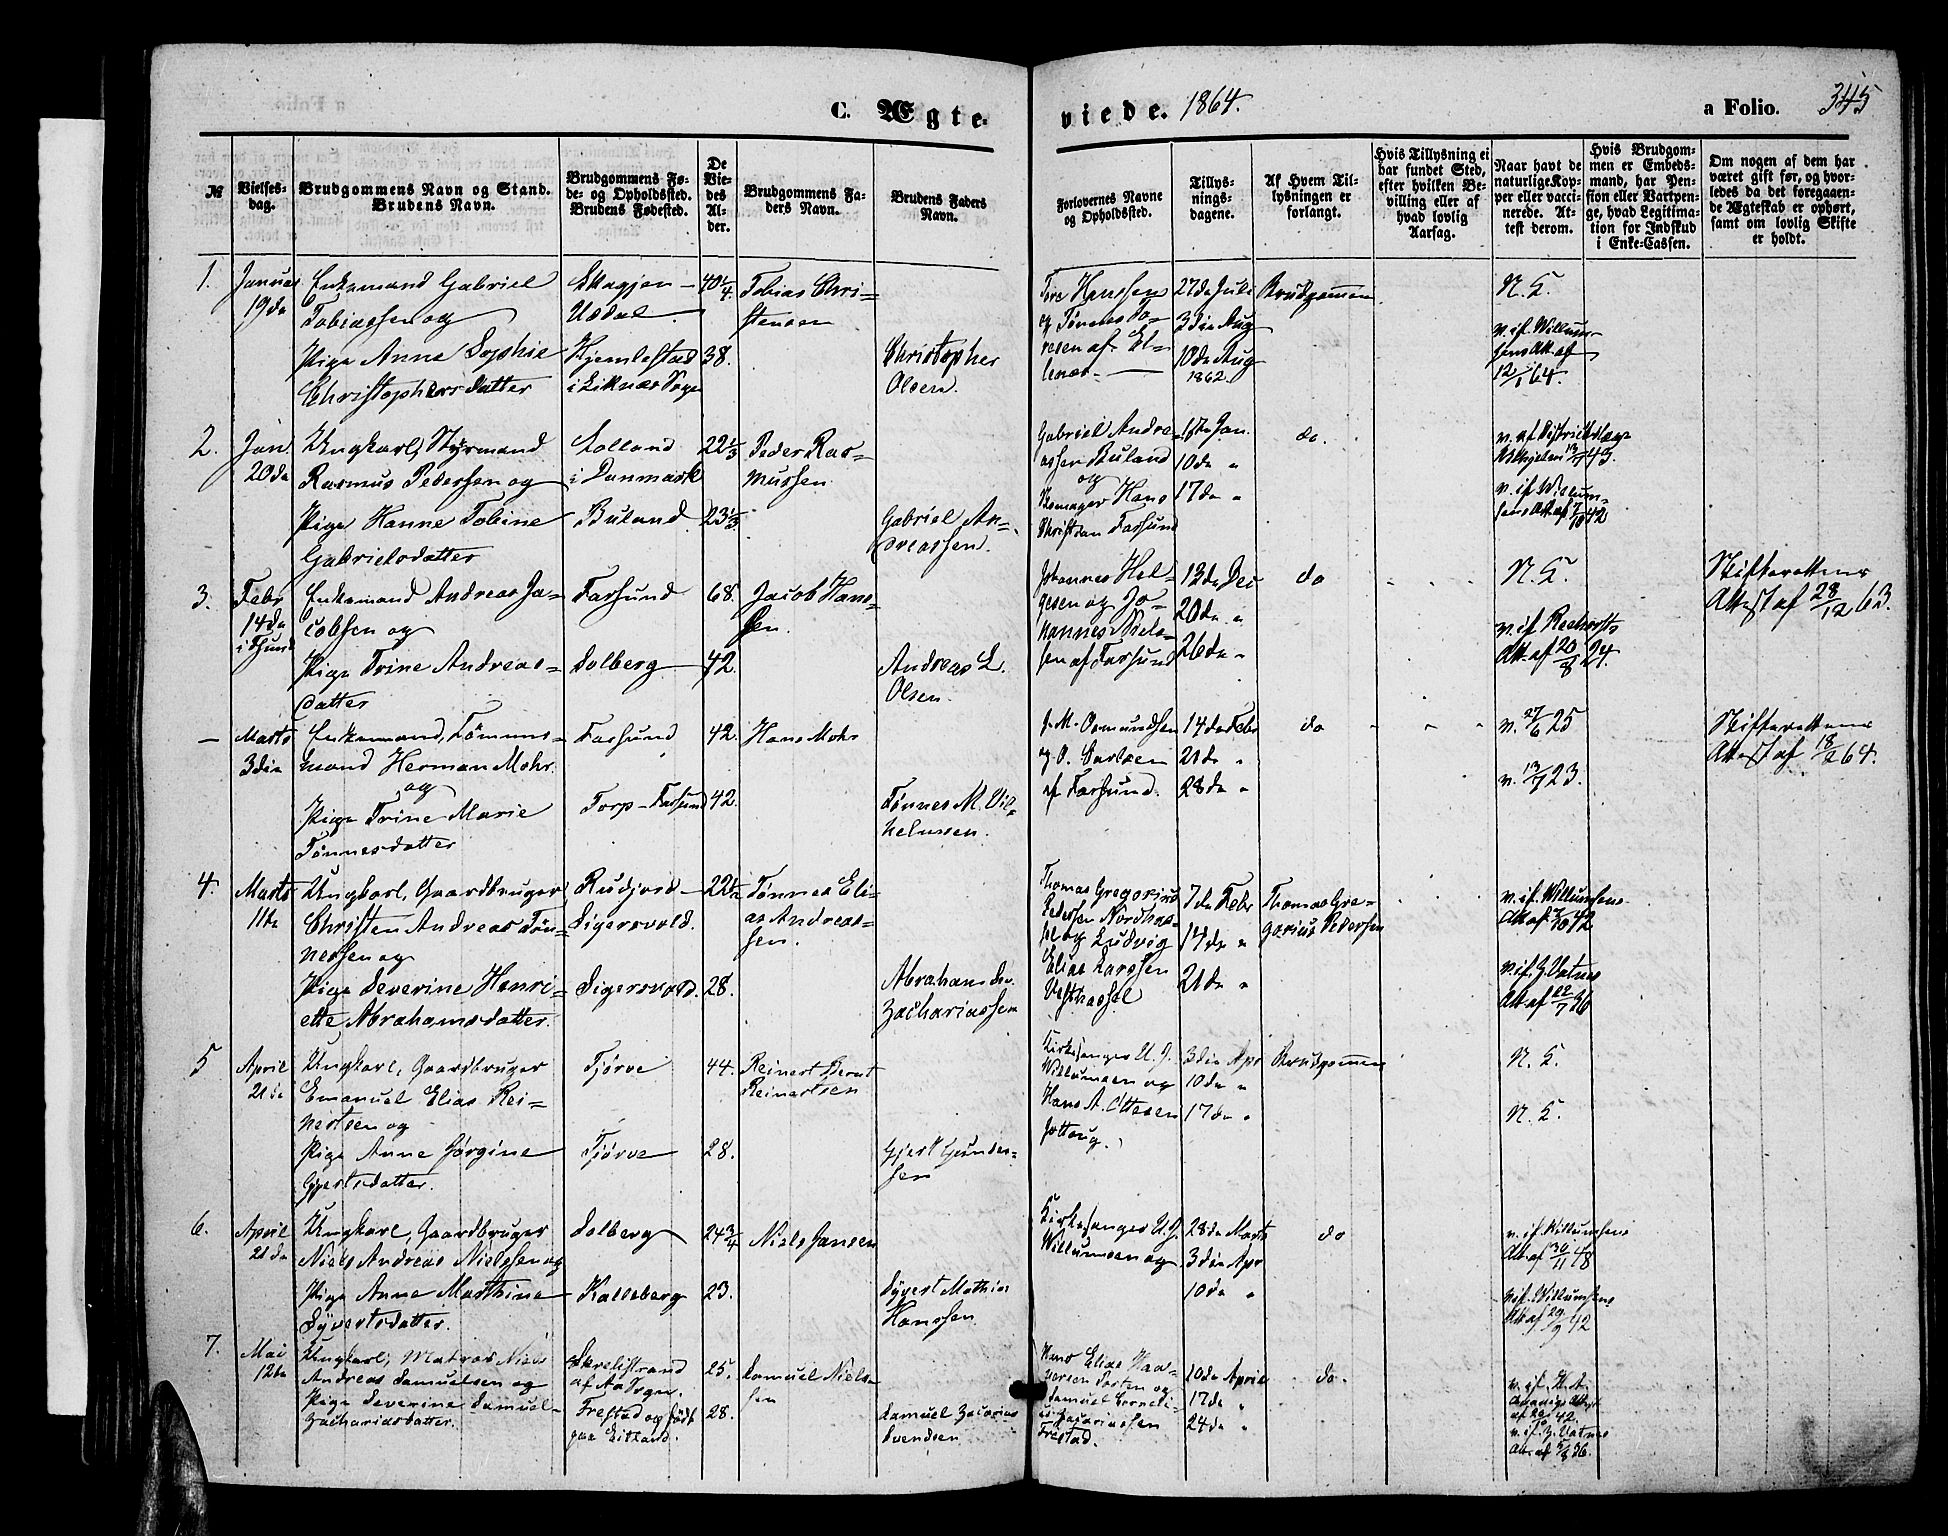 C. Ægte-
viede. 1864.
a Folio. 345
№
Vielses-
dag.
Brudgommens Navn og Stand.
Brudens Navn.
Brudgommens Fø-
de- og Opholdssted.
Brudens Fødested.
De
Vie-
des
Al-
der.
Brudgommens Fa-
ders Navn.
Brudens Faders
Navn.
Forlovernes Navne
og Opholdssted.
Tillys-
nings-
dagene.
Af Hvem Til-
lysningen er
forlangt.
Hvis Tillysning ei
har fundet Sted,
efter hvilken Be-
villing eller af
hvad lovlig
Aarsag.
Naar havt de
naturlige Kop-
per eller vacci-
nerede. At-
test derom.
Hvis Brudgom-
men er Embeds-
mand, har Pen-
sion eller Vartpen-
ge, hvad Legitima-
tion for Indskud
i Enke-Cassen.
Om nogen af dem har
været gift før, og hvor-
ledes da det foregagen-
de Ægteskab er ophørt,
samt om lovlig Skifte
er holdt.
1.
Januar
19de
Enkemand Gabriel
Tobiassen og
Pige Anne Sophie
Christophersdatter
Udal
38.
i Liknes Sogn
40 1/4
Tobias Chri-
stensen
Christopher
Olsen.
Tore Hanssen
og Tønnes To-
resen af El-
lenes
27de Juli
3die Aug
10de Aug
1862.
Brudgommen.
N. E.
v. if. Willum-
sens Att. af
12/1 64.
2.
Jan.
20de
Ungkarl, Styrmand
Rasmus Pederssen og
Pige Hanne Tobine
Gabrielsdatter
Lolland
i Danmark
Buland
22 1/3
23 1/3
Peder Ras-
mussen
Gabriel An-
dreassen.
Gabriel Andre-
assen Buland
og
Hans
Christian Farsund
Jan.
10de "
17de "
do.
v. if. Willum-
sens Att. af
3.
Febr
14de
i Fsund
Enkemand Andreas Ja-
cobsen og
Pige Trine Andreas-
datter
Farsund
Solberg
68.
42.
Jacob Hans-
sen.
Andreas L.
Olsen.
Johannes Hel-
gesen og Jo-
hannes Niels-
sen af Farsund
13de Dec
20de "
26de "
do
N. E.
Att. af 20/8 24.
Skifterettens
Attest af 28/12 63.
—
Marts
3die
Enkemand, Tømmer-
mand Herman Mohr
og
Pige Trine Marie
Tønnesdatter
Farsund
Torp – Farsund
42.
42.
Hans Mohr
Tønnes M. Vil-
helmssen.
J. M. Osmundsen
og O. Carlsen
af Farsund.
14de Febr
21de "
28de "
do
v. 27/6 25
v. 13/7 23.
Skifterettens
Attest af 18/2 64.
4.
Marts
11te
Ungkarl, Gaardbruger
Christen Andreas Tøn-
nessen og
Pige Severine Henri-
ette Abrahamsdatter.
Rudjord –
Sigersvold.
Sigersvold.
22 1/2
28.
Tønnes Eli-
as Andreas-
sen.
Abraham
Zachariassen
Thomas Gregorius
Pedersen Nordhas-
sel og Ludvig
Elias Larssen
Vesthassel
7de Febr
14de "
21de "
Thomas Gre-
gorius Pedersen
v. if. Willumsens
v. if. Z. Vatnes
Att. af 22/7 36
5
April
21de
Ungkarl, Gaardbruger
Emanuel Elias Rei-
nertsen og
Pige Anne Jørgine
Gjertsdatter.
Tjørve
Tjørve
44.
28.
Reinert Bernt
Reinertsen
Gjert Gunder-
sen
Kirkesanger U. J.
Willumsen og
Hans A. Ottesen
3die Apr
10de "
17de "
Brudgommen
N. E.
N. E.
6.
April
21de
Ungkarl, Gaardbruger
Niels Andreas Nielssen og
Pige Anne Marthine
Syvertsdatter.
Solberg
Kalleberg
24 3/4
23.
Niels Jansen
Syvert Mathias
Hanssen
Kirkesanger U. J.
Willumsen og
28de Marts
3die Apr
10de "
do
v. if. Willumsens
Att. af 30/11 48
v. if. Willumsens
Att. af 29/9 42
7.
Mai
12te
Ungkarl, Matros Niels
Andreas Samuelsen og
Pige Severine Samuel-
Zachariasdatter.
af Aa Sogn.
Frestad og født
paa Eitland.
25.
28.
Samuel Niels-
sen
Samuel Zacarias
Svendsen
Hans Elias Haa-
versen og
Samuel Corneli-
us Zacariassen
Frestad.
10de April
17de "
24de "
do.
v. if. Z. Vatnes
Att. af 5/8 36.